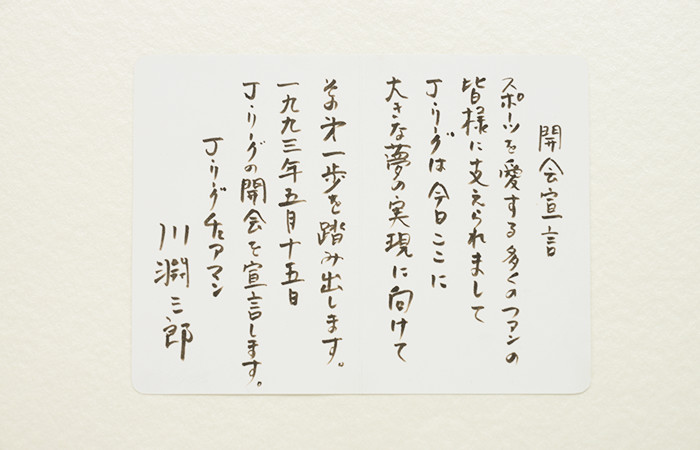 開会宣言
スポーツを愛する多くのファンの
皆様に支えられまして
Jリーグは今日ここに
大きな夢の実現に向けて
その第一歩を踏み出します。
一九九三年五月十五日
Jリーグの開会を宣言します。
Jリーグチェアマン
川淵三郎